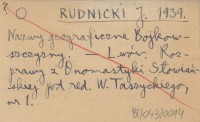 ?
O RUDNICKI J. 1939.
Nazwy geograficzne Bojkow-
szczyzny. – Lwów. Roz-
prawy z Onomastyki Słowiań-
skiej pod red. W. Taszyckiego,
nr 1.
BJ/043/0014